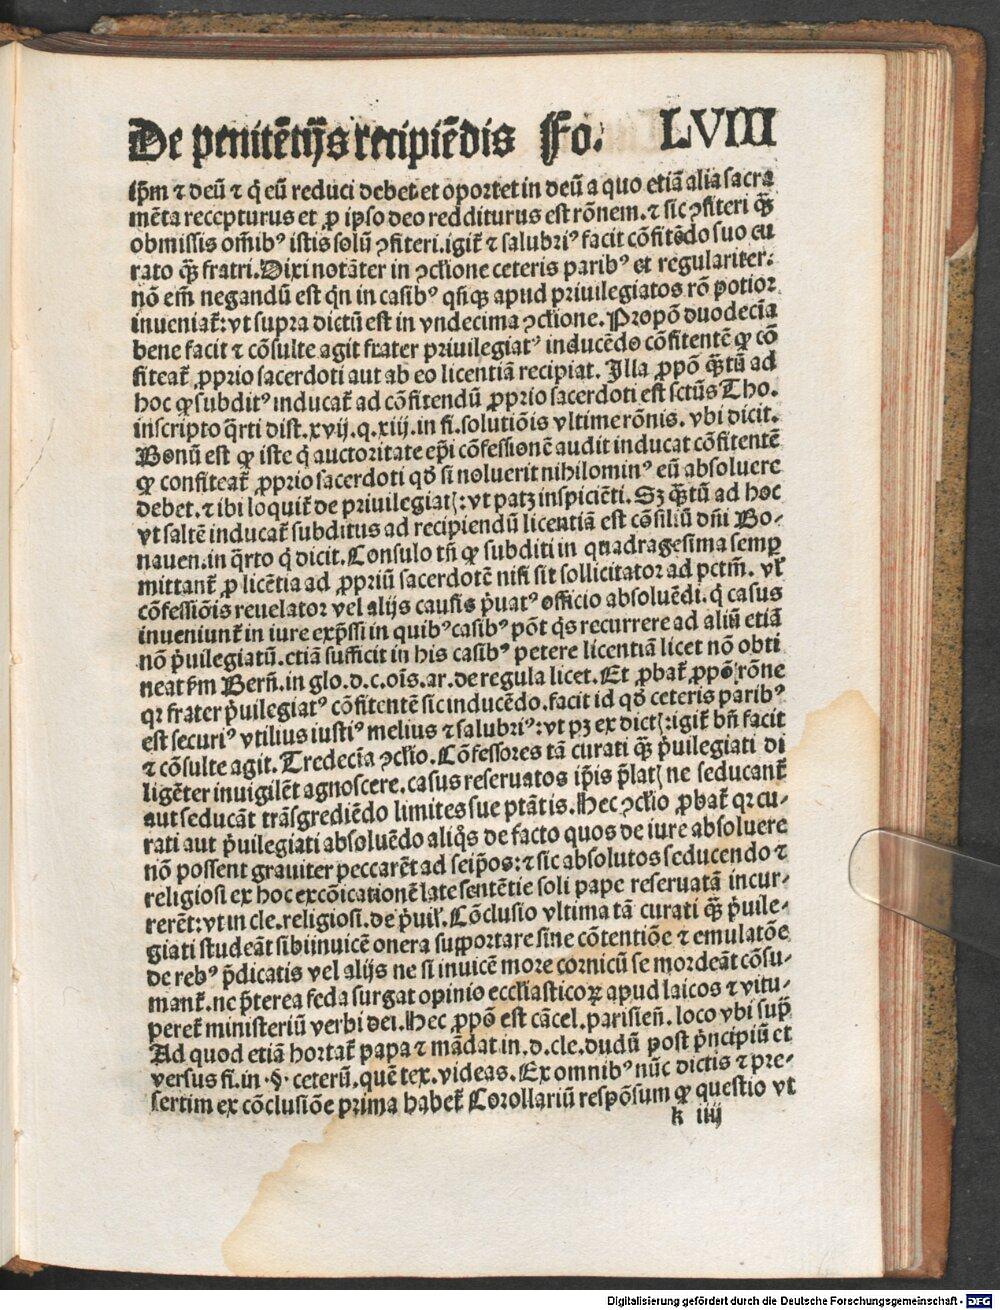 De penitētijs recipiēdis Fo. LVIII
ip̄m ⁊ deū ⁊ q̇ eū reduci debet et oportet in deū a quo etiā alia sacra
mēta recepturus et ꝓ ipso deo redditurus est rōnem. ⁊ sic ꝯfiteri q̄ꝫ
obmissis om̄ibꝰ istis solū ꝯfiteri. igit̄ ⁊ salubriꝰ facit cōfitēdo suo cu
rato q̄ꝫ fratri. Dixi notāter in ꝯclione ceteris paribꝰ et regulariter.
nō em̄ negandū est qn̄ in casibꝰ qn̄qꝫ apud priuilegiatos rō potior
inueniat̄: vt supra dictū est in vndecima ꝯclione. Propō duodecīa
bene facit ⁊ cōsulte agit frater priuilegiatꝰ inducēdo cōfitentē ꝙ cō
fiteat̄ ꝓprio sacerdoti aut ab eo licentiā recipiat. Illa ꝓpō q̄ꝫtū ad
hoc ꝙ subditꝰ inducat̄ ad cōfitendū ꝓprio sacerdoti est sctūs Tho.
in scripto q̄rti dist. xvij. q. xiij. in fi. solutiōis vltime rōnis. vbi dicit.
Bonū est ꝙ iste q̇ auctoritate ep̄i cōfessionē audit inducat cōfitentē
ꝙ confiteat̄ ꝓprio sacerdoti qđ si noluerit nihilominꝰ eū absoluere
debet. ⁊ ibi loquit̄ de priuilegiatꝭ: vt patꝫ inspiciēti. Sꝫ q̄ꝫtū ad hoc
vt saltē inducat̄ subditus ad recipiendū licentiā est cōsiliū dn̄i Bo-
nauen. in q̄rto q̇ dicit. Consulo tn̄ ꝙ subditi in quadragesima semꝑ
mittant̄ ꝓ licētia ad ꝓpriū sacerdotē nisi sit sollicitator ad pctm̄. vl̄
cōfessiōis reuelator vel alijs causis ṗuatꝰ officio absoluēdi. q̇ casus
inueniunt̄ in iure exp̄ssi in quibꝰ casibꝰ pōt q̇s recurrere ad aliū etiā
nō ṗuilegiatū. etiā sufficit in his casibꝰ petere licentiā licet nō obti
neat fm̄ Bern̄. in glo. d. c. oīs. ar. de regula licet. Et ꝓbat̄ ꝓpō rōne
qꝛ frater ṗuilegiatꝰ cōfitentē sic inducēdo. facit id qđ ceteris paribꝰ
est securiꝰ vtilius iustiꝰ melius ⁊ salubriꝰ: vt pꝫ ex dictꝭ: igit̄ bn̄ facit
⁊ cōsulte agit. Tredecīa ꝯclio. Cōfessores tā curati q̄ꝫ ṗuilegiati di
ligēter inuigilēt agnoscere. casus reseruatos ip̄is p̄latꝭ ne seducant̄
aut seducāt trāsgrediēdo limites sue ptātis. Hec ꝯclio ꝓbat̄ qꝛ cu-
rati aut ṗuilegiati absoluēdo aliq̇s de facto quos de iure absoluere
nō possent grauiter peccarēt ad seip̄os: ⁊ sic absolutos seducendo ⁊
religiosi ex hoc excōicationē late sentētie soli pape reseruatā incur-
rerēt: vt in cle. religiosi. de ṗuil̄. Cōclusio vltima tā curati q̄ꝫ ṗuile-
giati studeāt sibiinuicē onera supportare sine cōtentiōe ⁊ emulatōe
de rebꝰ p̄dicatis vel alijs ne si inuicē more cornicū se mordeāt cōsu-
mant̄. ne p̄terea feda surgat opinio eccl̄iasticoꝝ apud laicos ⁊ vitu-
peret̄ ministeriū verbi dei. Hec ꝓpō est cācel. parisien̄. loco vbi sup̄
Ad quod etiā hortat̄ papa ⁊ mādat in. d. cle. dudū post ṗncipiū et
versus fi. in. §. ceterū. quē tex. videas. Ex omnibꝰ nūc dictis ⁊ pre-
sertim ex cōclusiōe prima habet̄ Corollariū respōsum ꝙ questio vt
k iiij
Digitalisierung gefördert durch die Deutsche Forschungsgemeinschaft - DFG